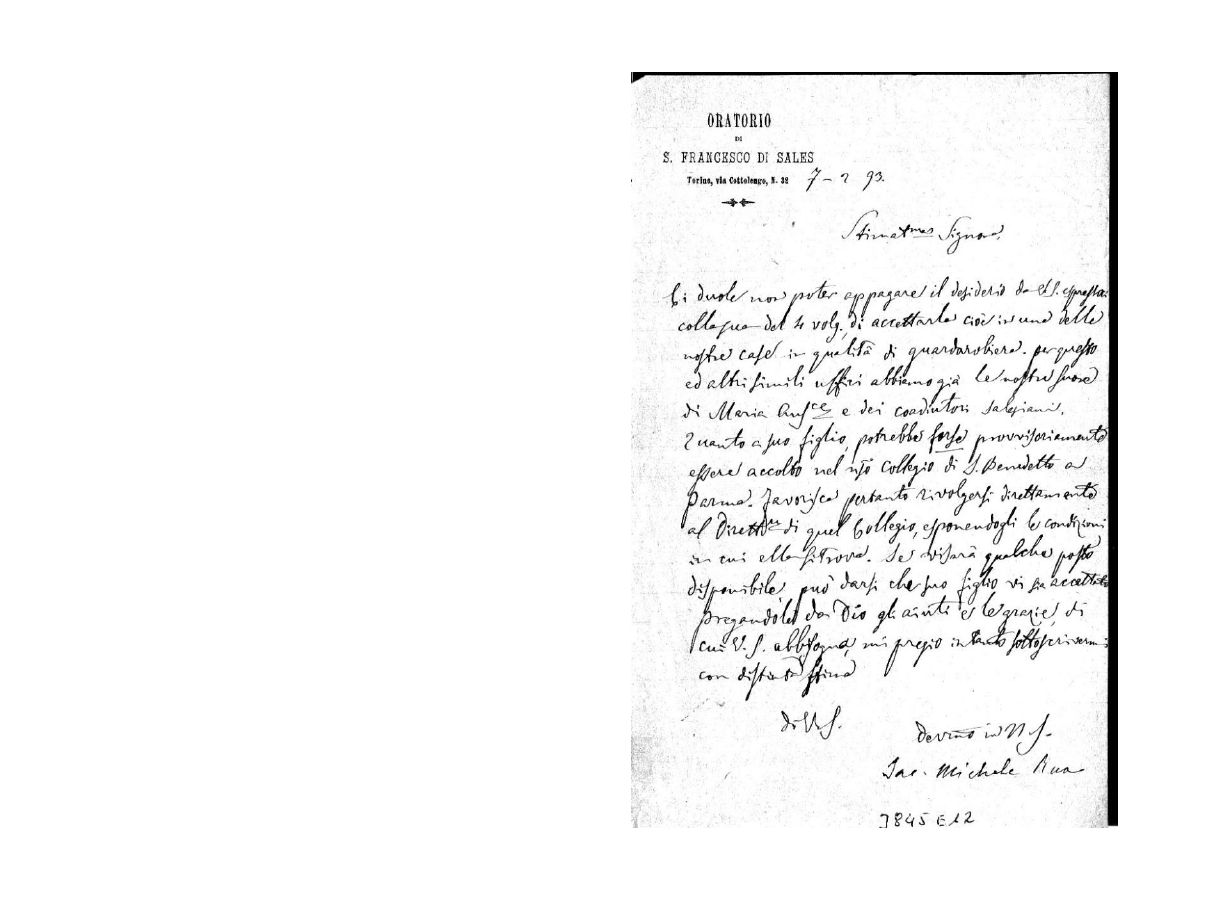 ORATORIO
DI
S. FRANCESCO DI SALES
Torino, via Cottolengo, N. 32 7 - 2 93.
Stimatma Signora,
Ci duole non poter appagare il desiderio da V.S. espresso
colla sua del 4 volg., di accettarla cioè in una delle
nostre case in qualità di guardarobiera. per questo
ed altri simili uffizi abbiamo già le nostre suore
di Maria Ausce e dei coadiutori salesiani.
Quanto a suo figlio, potrebbe forse provvisoriamente
essere accolto nel nro Collegio di S. Benedetto a
Parma. Favorisca pertanto rivolgersi direttamente
al Direttre di quel Collegio, esponendogli le condizioni
in cui ella si trova. Se vi sarà qualche posto
disponibile può darsi che suo figlio vi sia accettato
pregandole da Dio gli aiuti e le grazie, di
cui V. S. abbisogna, mi pregio intanto sottoscrivermi
con distinta stima
di V. S.
Devmo in N. S.
Sac. Michele Rua
3845 E12